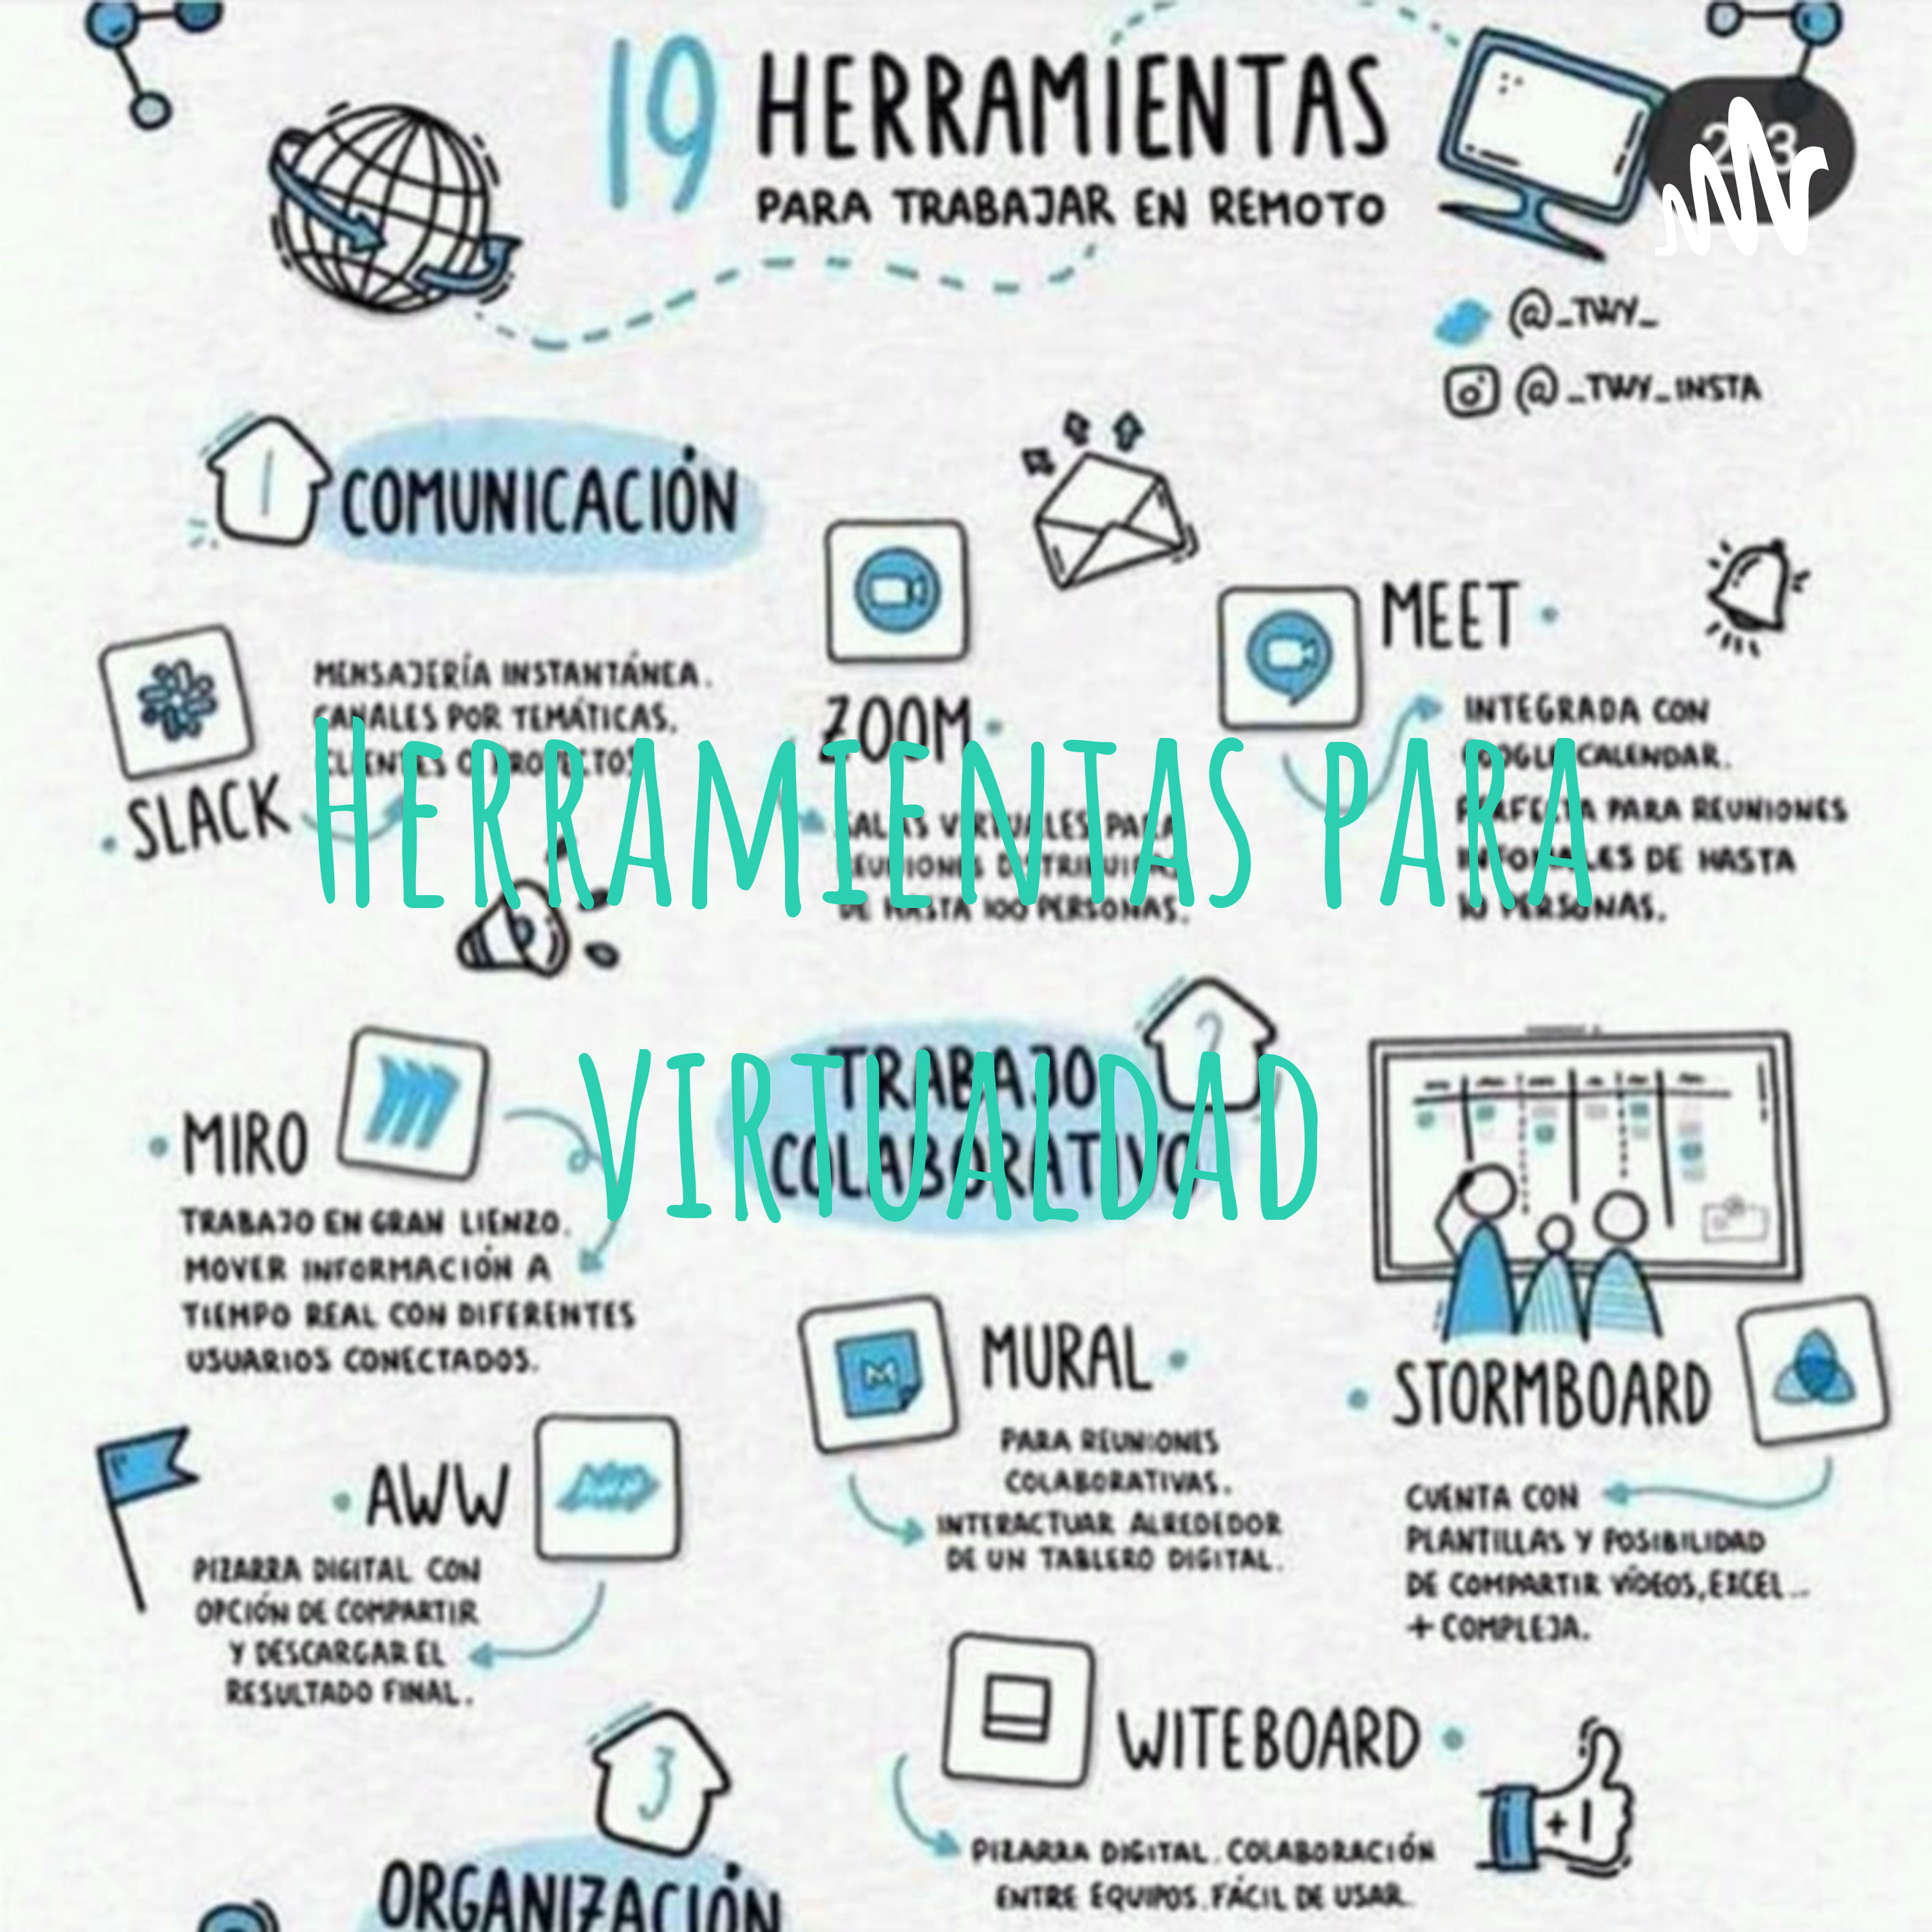 19 HERRAMIENTAS
PARA TRABAJAR EN REMOTO
@_TWY_
@_TWY_INSTA
1 COMUNICACIÓN
SLACK
MENSAJERÍA INSTANTÁNEA.
CANALES POR TEMÁTICAS,
CLIENTES O PROYECTOS
ZOOM
SALAS VIRTUALES PARA
REUNIONES DISTRIBUIDAS
DE HASTA 100 PERSONAS.
MEET
INTEGRADA CON
GOOGLE CALENDAR.
PERFECTA PARA REUNIONES
INFORMALES DE HASTA
10 PERSONAS.
Herramientas para
virtualdad
2
TRABAJO
COLABORATIVO
MIRO
TRABAJO EN GRAN LIENZO.
MOVER INFORMACIÓN A
TIEMPO REAL CON DIFERENTES
USUARIOS CONECTADOS.
M
MURAL
PARA REUNIONES
COLABORATIVAS.
INTERACTUAR ALREDEDOR
DE UN TABLERO DIGITAL.
STORMBOARD
CUENTA CON
PLANTILLAS Y POSIBILIDAD
DE COMPARTIR VÍDEOS, EXCEL...
+ COMPLEJA.
AWW
PIZARRA DIGITAL CON
OPCIÓN DE COMPARTIR
Y DESCARGAR EL
RESULTADO FINAL.
WITEBOARD
PIZARRA DIGITAL. COLABORACIÓN
ENTRE EQUIPOS. FÁCIL DE USAR.
+1
3
ORGANIZACIÓN